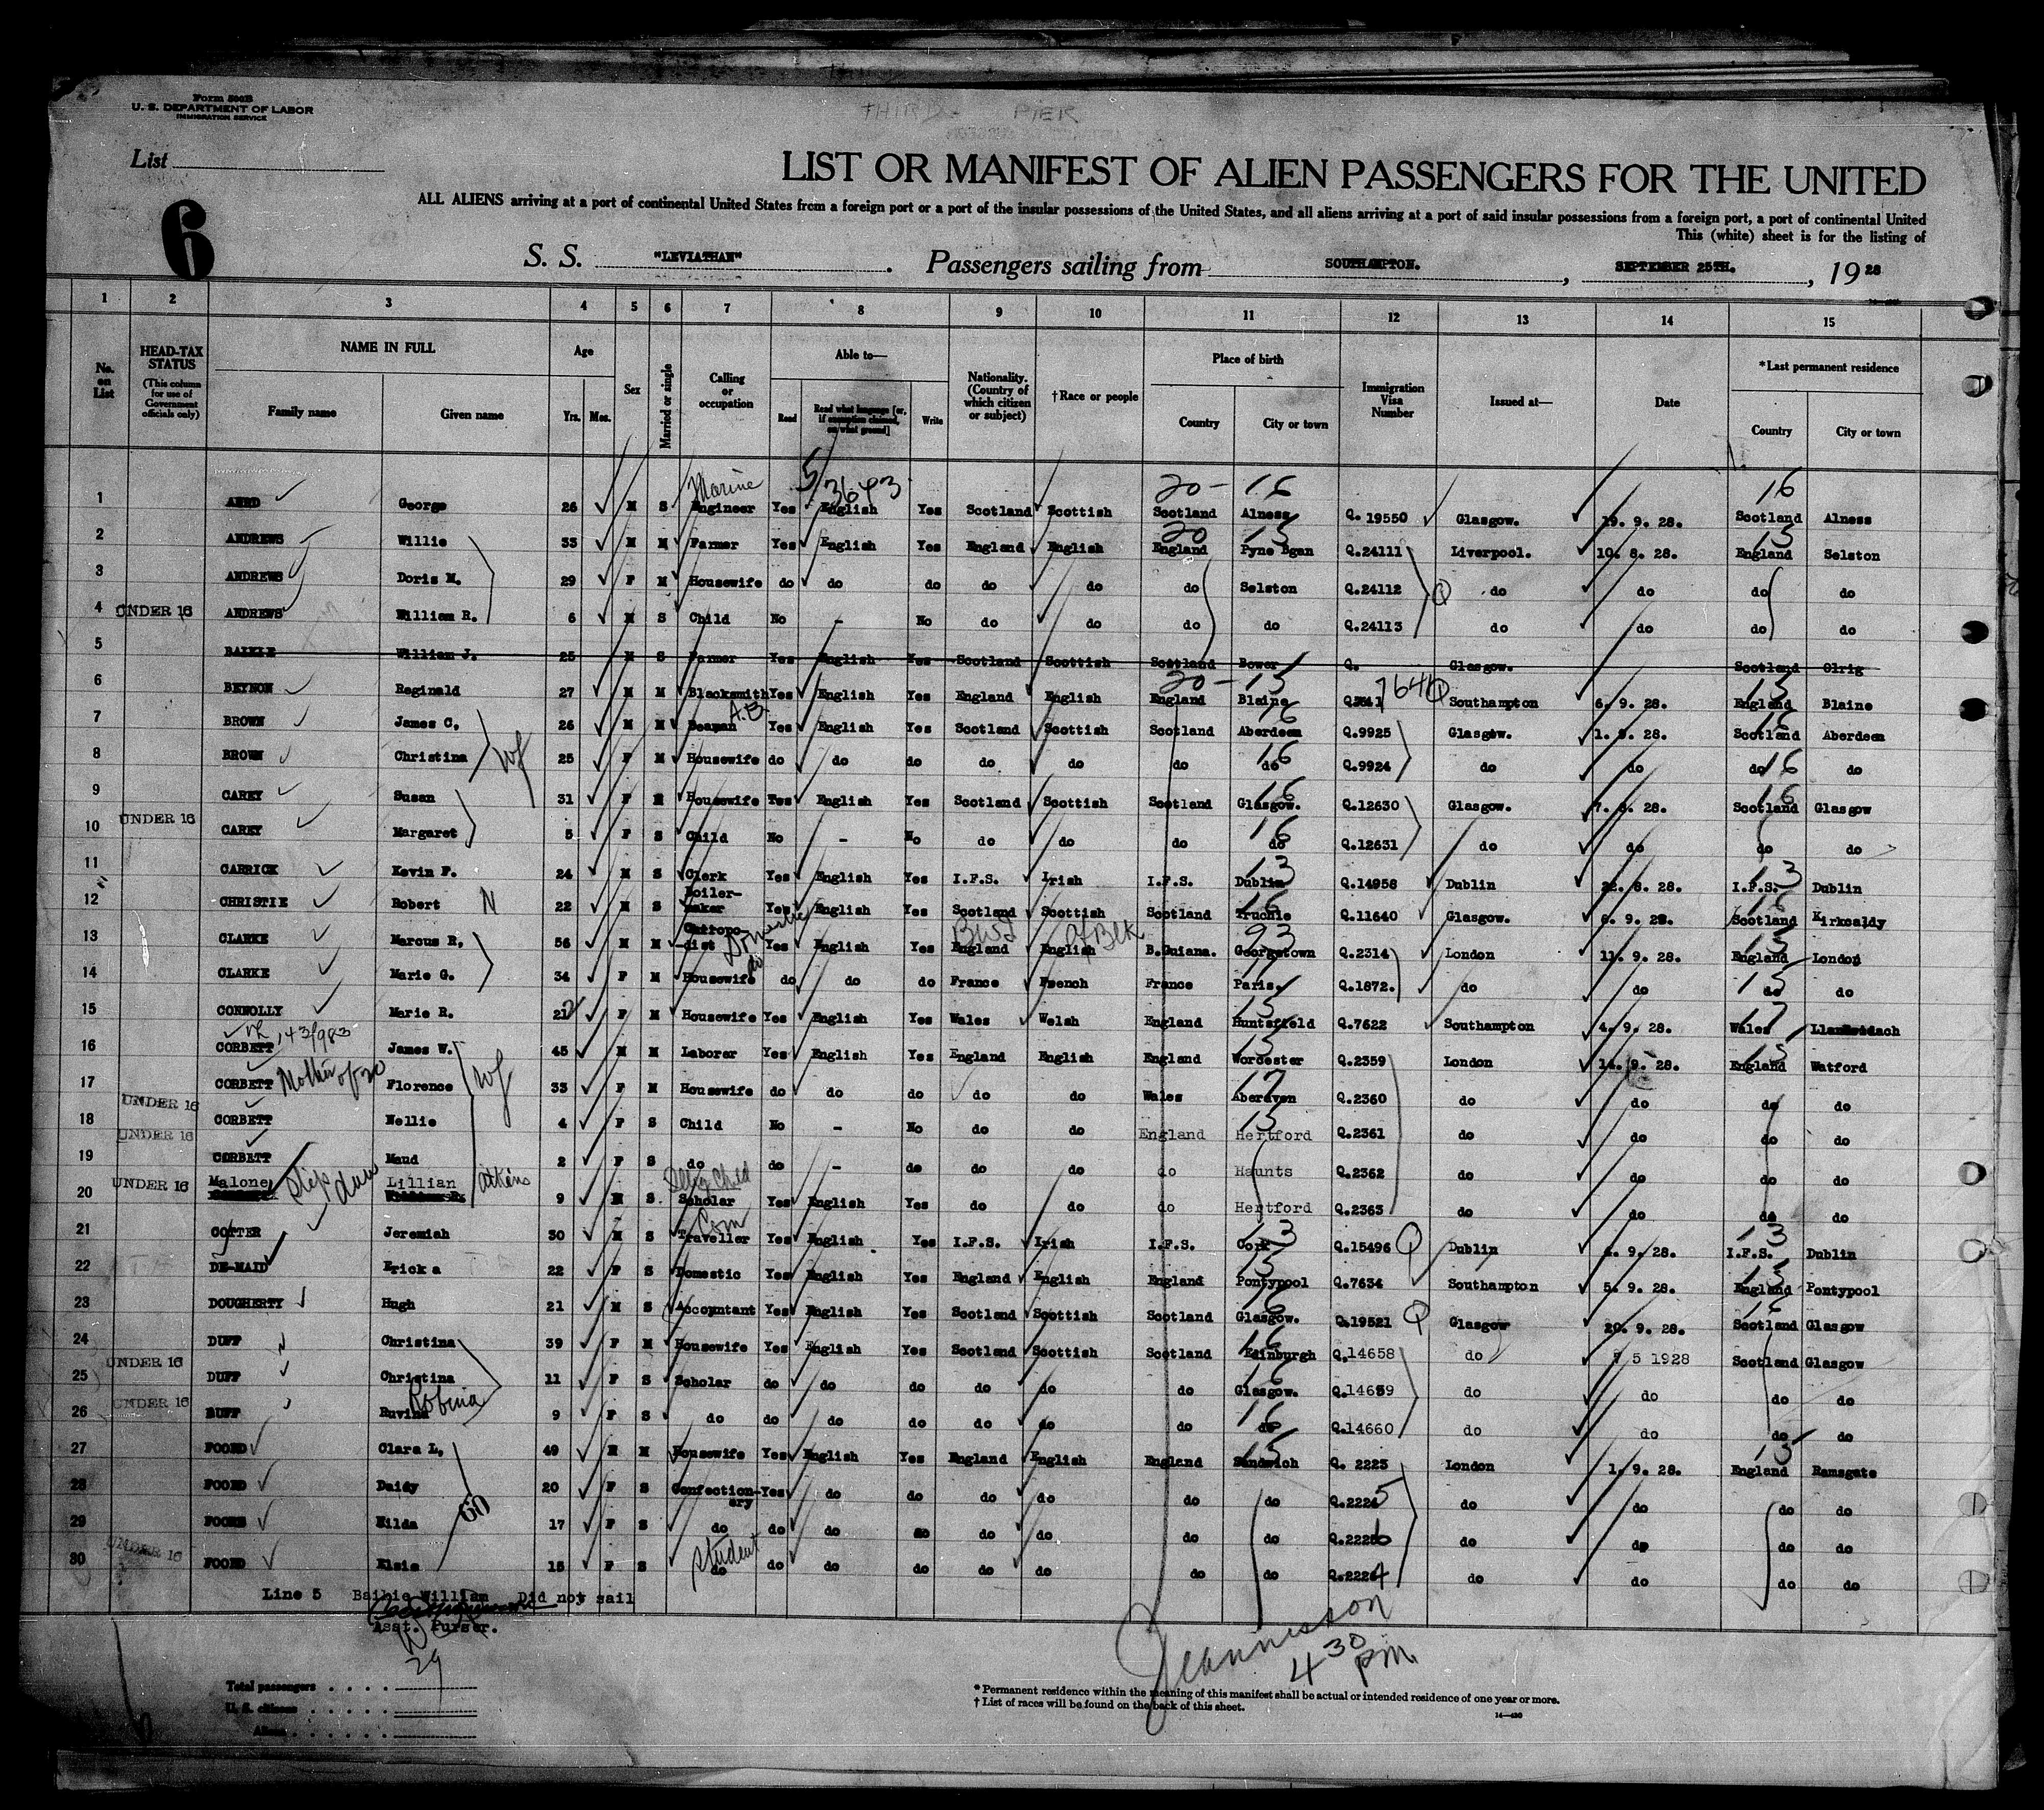 THIRD- PIER
Form 500B
U. S. DEPARTMENT OF LABOR
IMMIGRATION SERVICE
List
LIST OR MANIFEST OF ALIEN PASSENGERS FOR THE UNITED
ALL ALIENS arriving at a port of continental United States from a foreign port or a port of the insular possessions of the United States, and all aliens arriving at a port of said insular possessions from a foreign port, a port of continental United
This (white) sheet is for the listing of
6
S. S. "LEVIATHAN". Passengers sailing from SOUTHAMPTON., SEPTEMBER 25TH., 1928
1 2 3 4 5 6 7 8 9 10 11 12 13 14 15
No. on List HEAD-TAX STATUS (This column for use of Government officials only) NAME IN FULL Family name Given name Age Yrs. Mos. Sex Married or single Calling or occupation Able to— Read Read what language [or, if exemption claimed, on what ground] Write Nationality. (Country of which citizen or subject) †Race or people Place of birth Country City or town Immigration Visa Number Issued at— Date *Last permanent residence Country City or town
5/3643
Marine 20- 16 16
1 AIRD George 26 M S Engineer Yes English Yes Scotland Scottish Scotland Alness Q. 19550 Glasgow. 19. 9. 28. Scotland Alness
20 13 13
2 ANDREWS Willie 33 M M Farmer Yes English Yes England English England Pyne Bgan Q.24111 Liverpool. 10. 8. 28. England Selston
3 ANDREWS Doris M. 29 F M Housewife do do do do do do Selston Q.24112 do do do do
4 UNDER 16 ANDREWS William R. 6 M S Child No - No do do do do Q.24113 do do do do
5 BAIKIE William J. 25 M S Farmer Yes English Yes Scotland Scottish Scotland Bower Q. Glasgow. Scotland Olrig
20- 13 13
6 BEYNON Reginald 27 M M Blacksmith Yes English Yes England English England Blaina 7641 Southampton 6. 9. 28. England Blaina
A.B. 16 16
7 BROWN James C. 26 M M Seaman Yes English Yes Scotland Scottish Scotland Aberdeen Q.9925 Glasgow. 1. 9. 28. Scotland Aberdeen
8 BROWN Christina wf 25 F M Housewife do do do do do do do 16 Q.9924 do do do 16 do
9 CAREY Susan 31 F M Housewife Yes English Yes Scotland Scottish Scotland Glasgow. 16 Q.12630 Glasgow. 7. 8. 28. Scotland 16 Glasgow
10 UNDER 16 CAREY Margaret 5 F S Child No - No do do do do 16 Q.12631 do do do do
11 CARRICK Kevin F. 24 M S Clerk Yes English Yes I.F.S. Irish I.F.S. Dublin 13 Q.14958 Dublin 22. 8. 28. I.F.S. 13 Dublin
12 CHRISTIE Robert N 22 M S Boiler-maker Yes English Yes Scotland Scottish Scotland Truchie 16 Q.11640 Glasgow. 6. 9. 28. Scotland 16 Kirkcaldy
13 CLARKE Marcus R. 56 M M Chiropo-dist Yes English Yes England English Af Blk B.Guiana. Georgetown 93 Q.2314 London 11. 9. 28. England 13 London
14 CLARKE Marie G. 34 F M Housewife Domestic do do do do France French France Paris. 11 Q.1872. do do do 13 do
15 CONNOLLY Marie R. 21 F M Housewife Yes English Yes Wales Welsh England Huntsfield 13 Q.7622 Southampton 4. 9. 28. Wales 17
VR 143/983
16 CORBETT James W. 45 M M Laborer Yes English Yes England English England Worcester 13 Q.2359 London 14. 9. 28. England 13 Watford
17 CORBETT Mother of 20 Florence wf 33 F M Housewife do do do do do Wales Aberaven 17 Q.2360 do do do do
18 UNDER 16 CORBETT Nellie 4 F S Child No - No do do England Hertford 13 Q.2361 do do do do
19 UNDER 16 CORBETT Maud 2 F S do do - do do do do Haunts Q.2362 do do do do
20 UNDER 16 Malone Step daur Lillian Aitkins 9 M S Scholar Child Yes English Yes do do do Hertford Q.2363 do do do do
21 COTTER Jeremiah 30 M S Com Traveller Yes English Yes I.F.S. Irish I.F.S. Cork 13 Q.15496 Dublin 4. 9. 28. I.F.S. 13 Dublin
22 DE-MAID Erick a 22 F S Domestic Yes English Yes England English England Pontypool 13 Q.7634 Southampton 5. 9. 28. England 13 Pontypool
23 DOUGHERTY Hugh 21 M S Accountant Yes English Yes Scotland Scottish Scotland Glasgow. 16 Q.19521 Glasgow 20. 9. 28. Scotland 16 Glasgow
24 DUFF Christina 39 F M Housewife Yes English Yes Scotland Scottish Scotland Edinburgh 16 Q.14658 do 7 5 1928 Scotland Glasgow
25 UNDER 16 DUFF Christina 11 F S Scholar do do do do do do Glasgow. 16 Q.14659 do do do do
26 UNDER 16 DUFF Ruvina Robina 9 F S do do do do do do do do 16 Q.14660 do do do do
27 FOORD Clara L. 49 M M Housewife Yes English Yes England English England Sandwich 13 Q. 2223 London 1. 9. 28. England 13 Ramsgate
28 FOORD Daidy 20 F S Confection-ary Yes do do do do do do Q.2225 do do do do
29 FOORD Hilda 17 F S do do do do do do do do Q.2226 do do do do
30 UNDER 16 FOORD Elsie 15 F S do student do do do do do do do Q.2224 do do do do
Line 5 Baikie William Did not sail
Asst. Purser.
29
Jeannisson
4 30 pm.
Total passengers
U. S. citizens
Aliens
* Permanent residence within the meaning of this manifest shall be actual or intended residence of one year or more.
† List of races will be found on the back of this sheet.
14—430